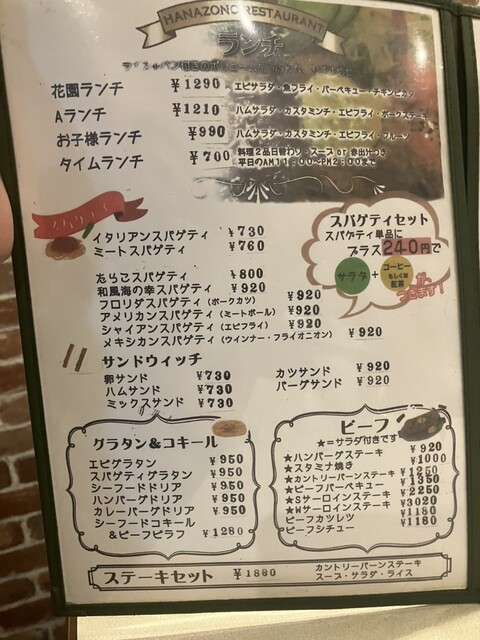 HANAZONO RESTAURANT
ランチ
花園ランチ ￥1290 エビサラダ・魚フライ・バーベキュー・チキンピカタ
Aランチ ￥1210 ハムサラダ・カスタミンチ・エビフライ・ポークステーキ
お子様ランチ ￥990 ハムサラダ・カスタミンチ・エビフライ・フルーツ
タイムランチ ￥700 料理2品日替わり・スープ or 赤出汁つき
平日のAM11:00〜PM2:00まで
イタリアンスパゲティ ￥730
ミートスパゲティ ￥760
たらこスパゲティ ￥800
和風海の幸スパゲティ ￥920
フロリダスパゲティ（ポークカツ） ￥920
アメリカンスパゲティ（ミートボール） ￥920
シャイアンスパゲティ（エビフライ） ￥920
メキシカンスパゲティ（ウインナー・フライオニオン） ￥920
スパゲティセット
スパゲティ単品に
プラス240円で
サラダ + コーヒー
もしくは
紅茶
が、
つきます!
サンドウィッチ
卵サンド ￥730
ハムサンド ￥730
ミックスサンド ￥730
カツサンド ￥920
バーグサンド ￥920
グラタン&コキール
エビグラタン ￥950
スパゲティグラタン ￥950
シーフードドリア ￥950
ハンバーグドリア ￥950
カレーバーグドリア ￥950
シーフードコキール
&ビーフピラフ ￥1280
ビーフ
★=サラダ付きです
★ハンバーグステーキ ￥920
★スタミナ焼き ￥1000
★カントリーバーンステーキ ￥1250
★ビーフバーベキュー ￥1350
★Sサーロインステーキ ￥2250
★Wサーロインステーキ ￥3020
ビーフカツレツ ￥1180
ビーフシチュー ￥1180
ステーキセット ￥1860 カントリーバーンステーキ
スープ・サラダ・ライス